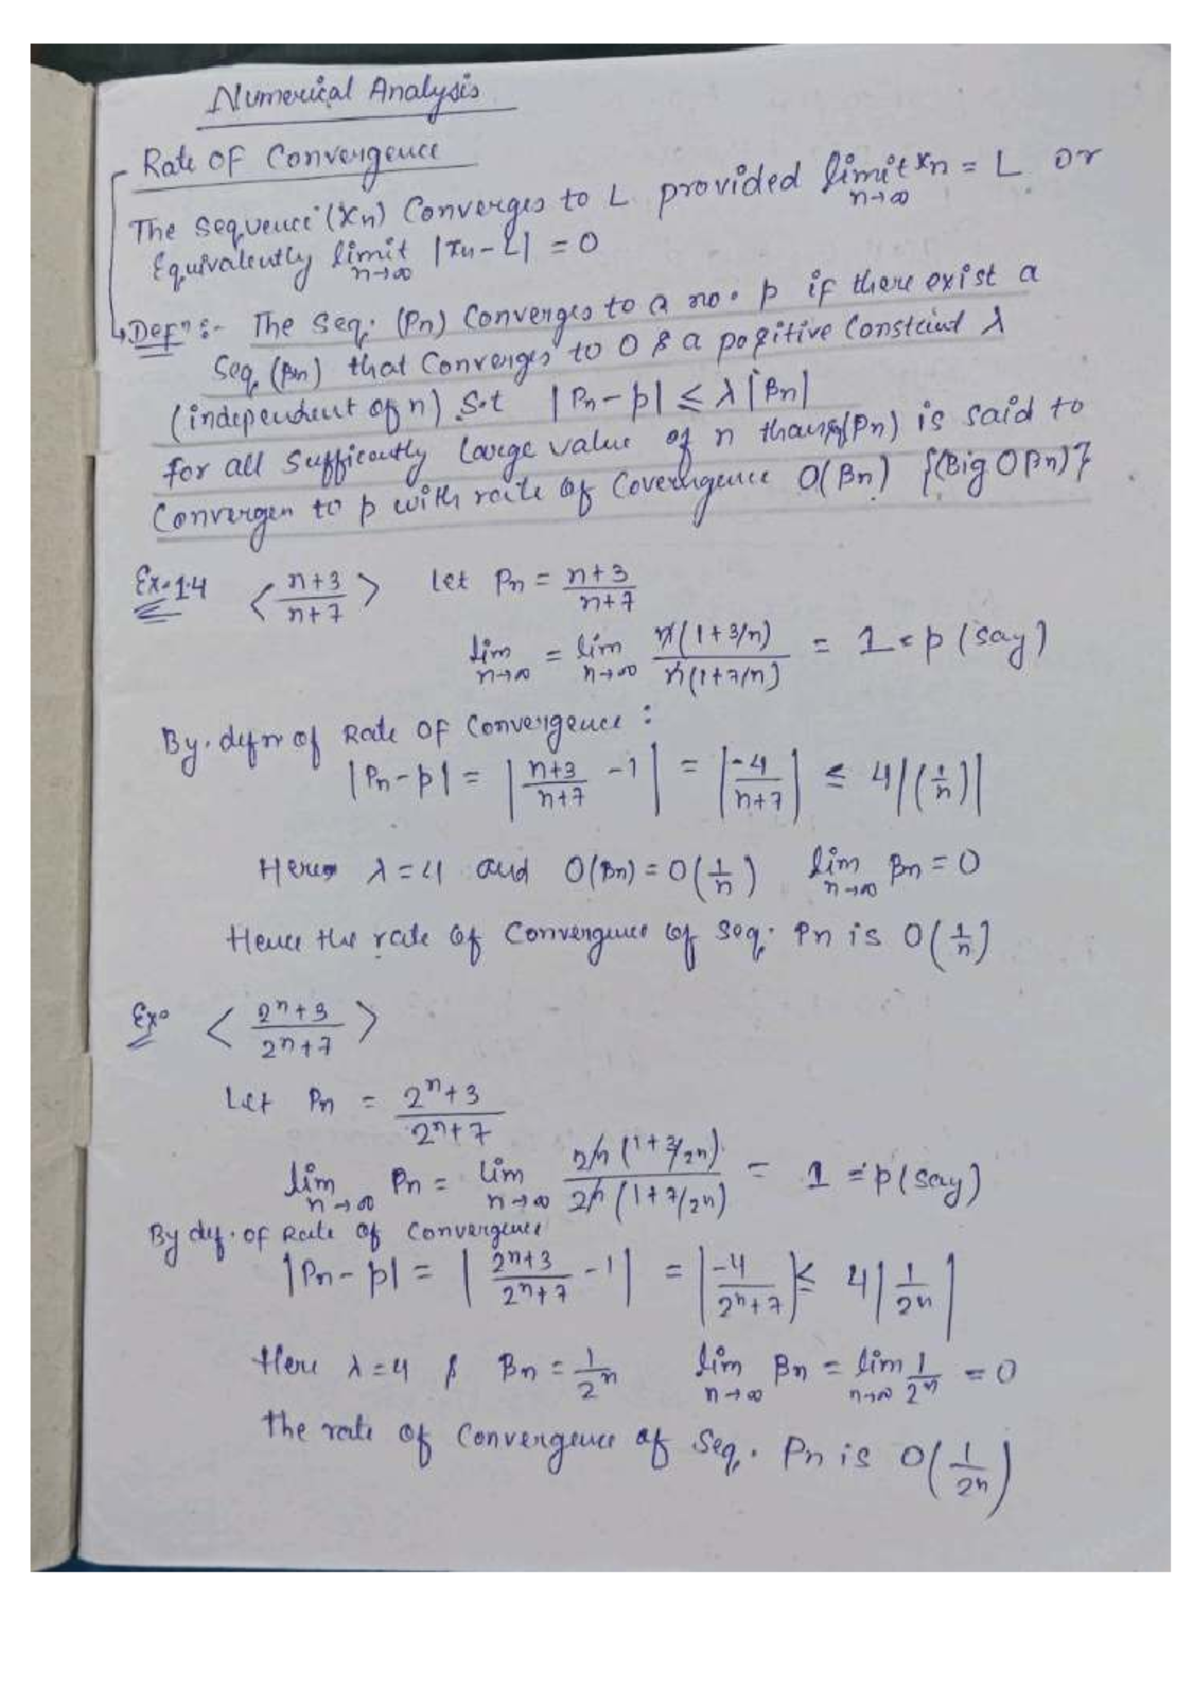 Numerical Analysis
Rate OF Convergence
The Sequence (xn) Converges to L provided limit n→∞ xn = L or
Equivalently limit n→∞ |xn - L| = 0
Defⁿ :- The Seq. (Pn) Converges to a no. p if there exist a
Seq. (βn) that Converges to 0 & a positive Constant λ
(independent of n) S.t |Pn - p| ≤ λ|βn|
for all sufficently large value of n than (Pn) is said to
Convergen to p with rate of Coverngence O(βn) {(Big O βn)}
Ex-1.4 < (n+3)/(n+7) > Let Pn = (n+3)/(n+7)
lim n→∞ = lim n→∞ n(1+3/n)/n(1+7/n) = 1 = p (say)
By. defn of Rate OF Convergence :
|Pn - p| = |(n+3)/(n+7) - 1| = |-4/(n+7)| ≤ 4|(1/n)|
Here λ = 4 and O(βn) = O(1/n) lim n→∞ βn = 0
Hence the rate of Convergence of Seq. Pn is O(1/n)
Ex. < (2ⁿ+3)/(2ⁿ+7) >
Let Pn = (2ⁿ+3)/(2ⁿ+7)
lim n→∞ Pn = lim n→∞ 2ⁿ(1+3/2ⁿ)/2ⁿ(1+7/2ⁿ) = 1 = p (say)
By def. of Rate of Convergence
|Pn - p| = |(2ⁿ+3)/(2ⁿ+7) - 1| = |-4/(2ⁿ+7)| ≤ 4|1/2ⁿ|
Here λ = 4 & βn = 1/2ⁿ lim n→∞ βn = lim n→∞ 1/2ⁿ = 0
The rate of Convergence of Seq. Pn is O(1/2ⁿ)